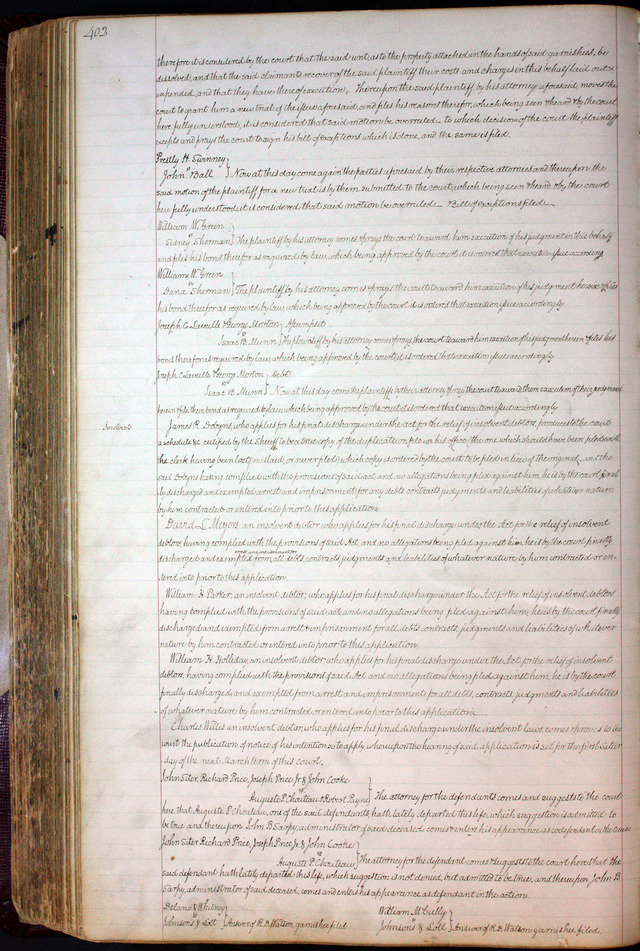 403
therefore it is considered by the court that the said writ, as to the property attached in the hands of said garnishees, be
dissolved, and that the said claimants recover of the said plaintiff their costs and charges in this behalf laid out &
expended, and that they have thereof execution. Thereupon the said plaintiff, by his attorney aforesaid, moves the
court to grant him a new trial of the issues aforesaid, and files his reasons therefor, which being seen & heard & by the court
here fully understood, it is considered that said motion be overruled. to which decision of the court the plaintiff
excepts and prays the court to sign his bill of exceptions which is done, and the same is filed.
Presly H. Swinney
vs
John Ball } Now at this day come again the parties aforesaid by their respective attornies and thereupon the
said motion of the plaintiff for a new trial is by them submitted to the court, which being seen & heard & by the court
here fully understood, it is considered that said motion be overruled — Bill of exceptions filed. —
William W. Green
vs
Sidney Sherman } The plaintiff by his attorney comes & prays the court to award him execution of his judgment in this behalf
and files his bond therefor as required by law, which being approved by the court it is ordered that execution issue according
William W. Green
vs
Dana Sherman } The plaintiff by his attorney comes & prays the court to award him execution of his judgment herein & files
his bond therefor as required by law, which being approved by the court it is ordered that execution issue accordingly
Joseph C. Laveille & George Morton } Assumpsit
vs
Isaac B. Munn } The plaintiff by his attorney comes & prays the court to award him execution of his judgment herein & files his
bond therefor as required by law, which being approved by the court, it is ordered that execution issue accordingly
Joseph C. Laveille & George Morton } Debt
vs
Isaac B. Munn } Now at this day come the plaintiffs by their attorney & pray the court to award them execution of their judgment
herein & file their bond as required by law which being approved by the court it is ordered that execution issue accordingly
Insolvent
James R. Dobyns, who applies for his final discharge under the act for the relief of insolvent debtors, produces to the court
a schedule &c certified by the Sheriff to be a true copy of the duplicate on file in his office, (the one which should have been filed with
the clerk having been lost, or mislaid, or never filed,) which copy is ordered by the court to be filed in lieu of the original, and the
said Dobyns having complied with the provisions of said act, and no allegations being filed against him, he is by the court final-
ly discharged and exempted arrest and imprisonment for any debts contracts judgments and liabilities of whatever nature
by him contracted or entered into prior to this application.
David L. Meyers an insolvent debtor who applies for his final discharge under the Act for the relief of insolvent
debtors, having complied with the provisions of said Act, and no allegations being filed against him, he is by the court finally
arrest and imprisonment for
discharged and exempted from all debts contracts judgments and liabilities of whatever nature by him contracted or en-
tered into prior to this application.
William H. Parker, an insolvent debtor, who applies for his final discharge under the Act for the relief of insolvent debtors
having complied with the provisions of said act and no allegations being filed against him, he is by the court finally
discharged and exempted from arrest & imprisonment for all debts, contracts, judgments and liabilities of whatever
nature by him contracted or entered into prior to this application.
William H. Holliday, an insolvent debtor, who applies for his final discharge under the Act for the relief of insolvent
debtors, having complied with the provisions of said Act and no allegations being filed against him, he is by the court
finally discharged and exempted from arrest and imprisonment for all debts, contracts, judgments and liabilities
of whatever nature by him contracted or entered into prior to this application. —
Charles Willis an insolvent debtor, who applies for his final discharge under the insolvent laws, comes & proves to the
court the publication of notice of his intention so to apply, whereupon the hearing of said application is set for the first
day of the next March term of this court.
John Siter, Richard Price, Joseph Price Jr & John Cooke
vs
Auguste P. Chouteau & Robert Payne } The attorney for the defendants comes and suggests to the court
here that Auguste P. Chouteau, one of the said defendants hath lately departed this life, which suggestion is admitted to
be true and thereupon John B. Sarpy, administrator of said deceased comes & enters his appearance as codefendant in the cause
John Siter Richard Price, Joseph Price Jr. & John Cooke
vs
Auguste P. Chouteau } The attorney for the defendant comes & suggests to the court here that the
said defendant hath lately departed this life, which suggestion is not denied, but admitted to be true, and thereupon John B.
Sarpy, administrator of said deceased, comes and enters his appearance as defendant in the action.
Delano & Whiney
vs
Johnson & Lott } Answer of R. D. Watson garnishee filed
William McCully
vs
Johnson & Lott } Answer of R. D. Watson garnishee filed.